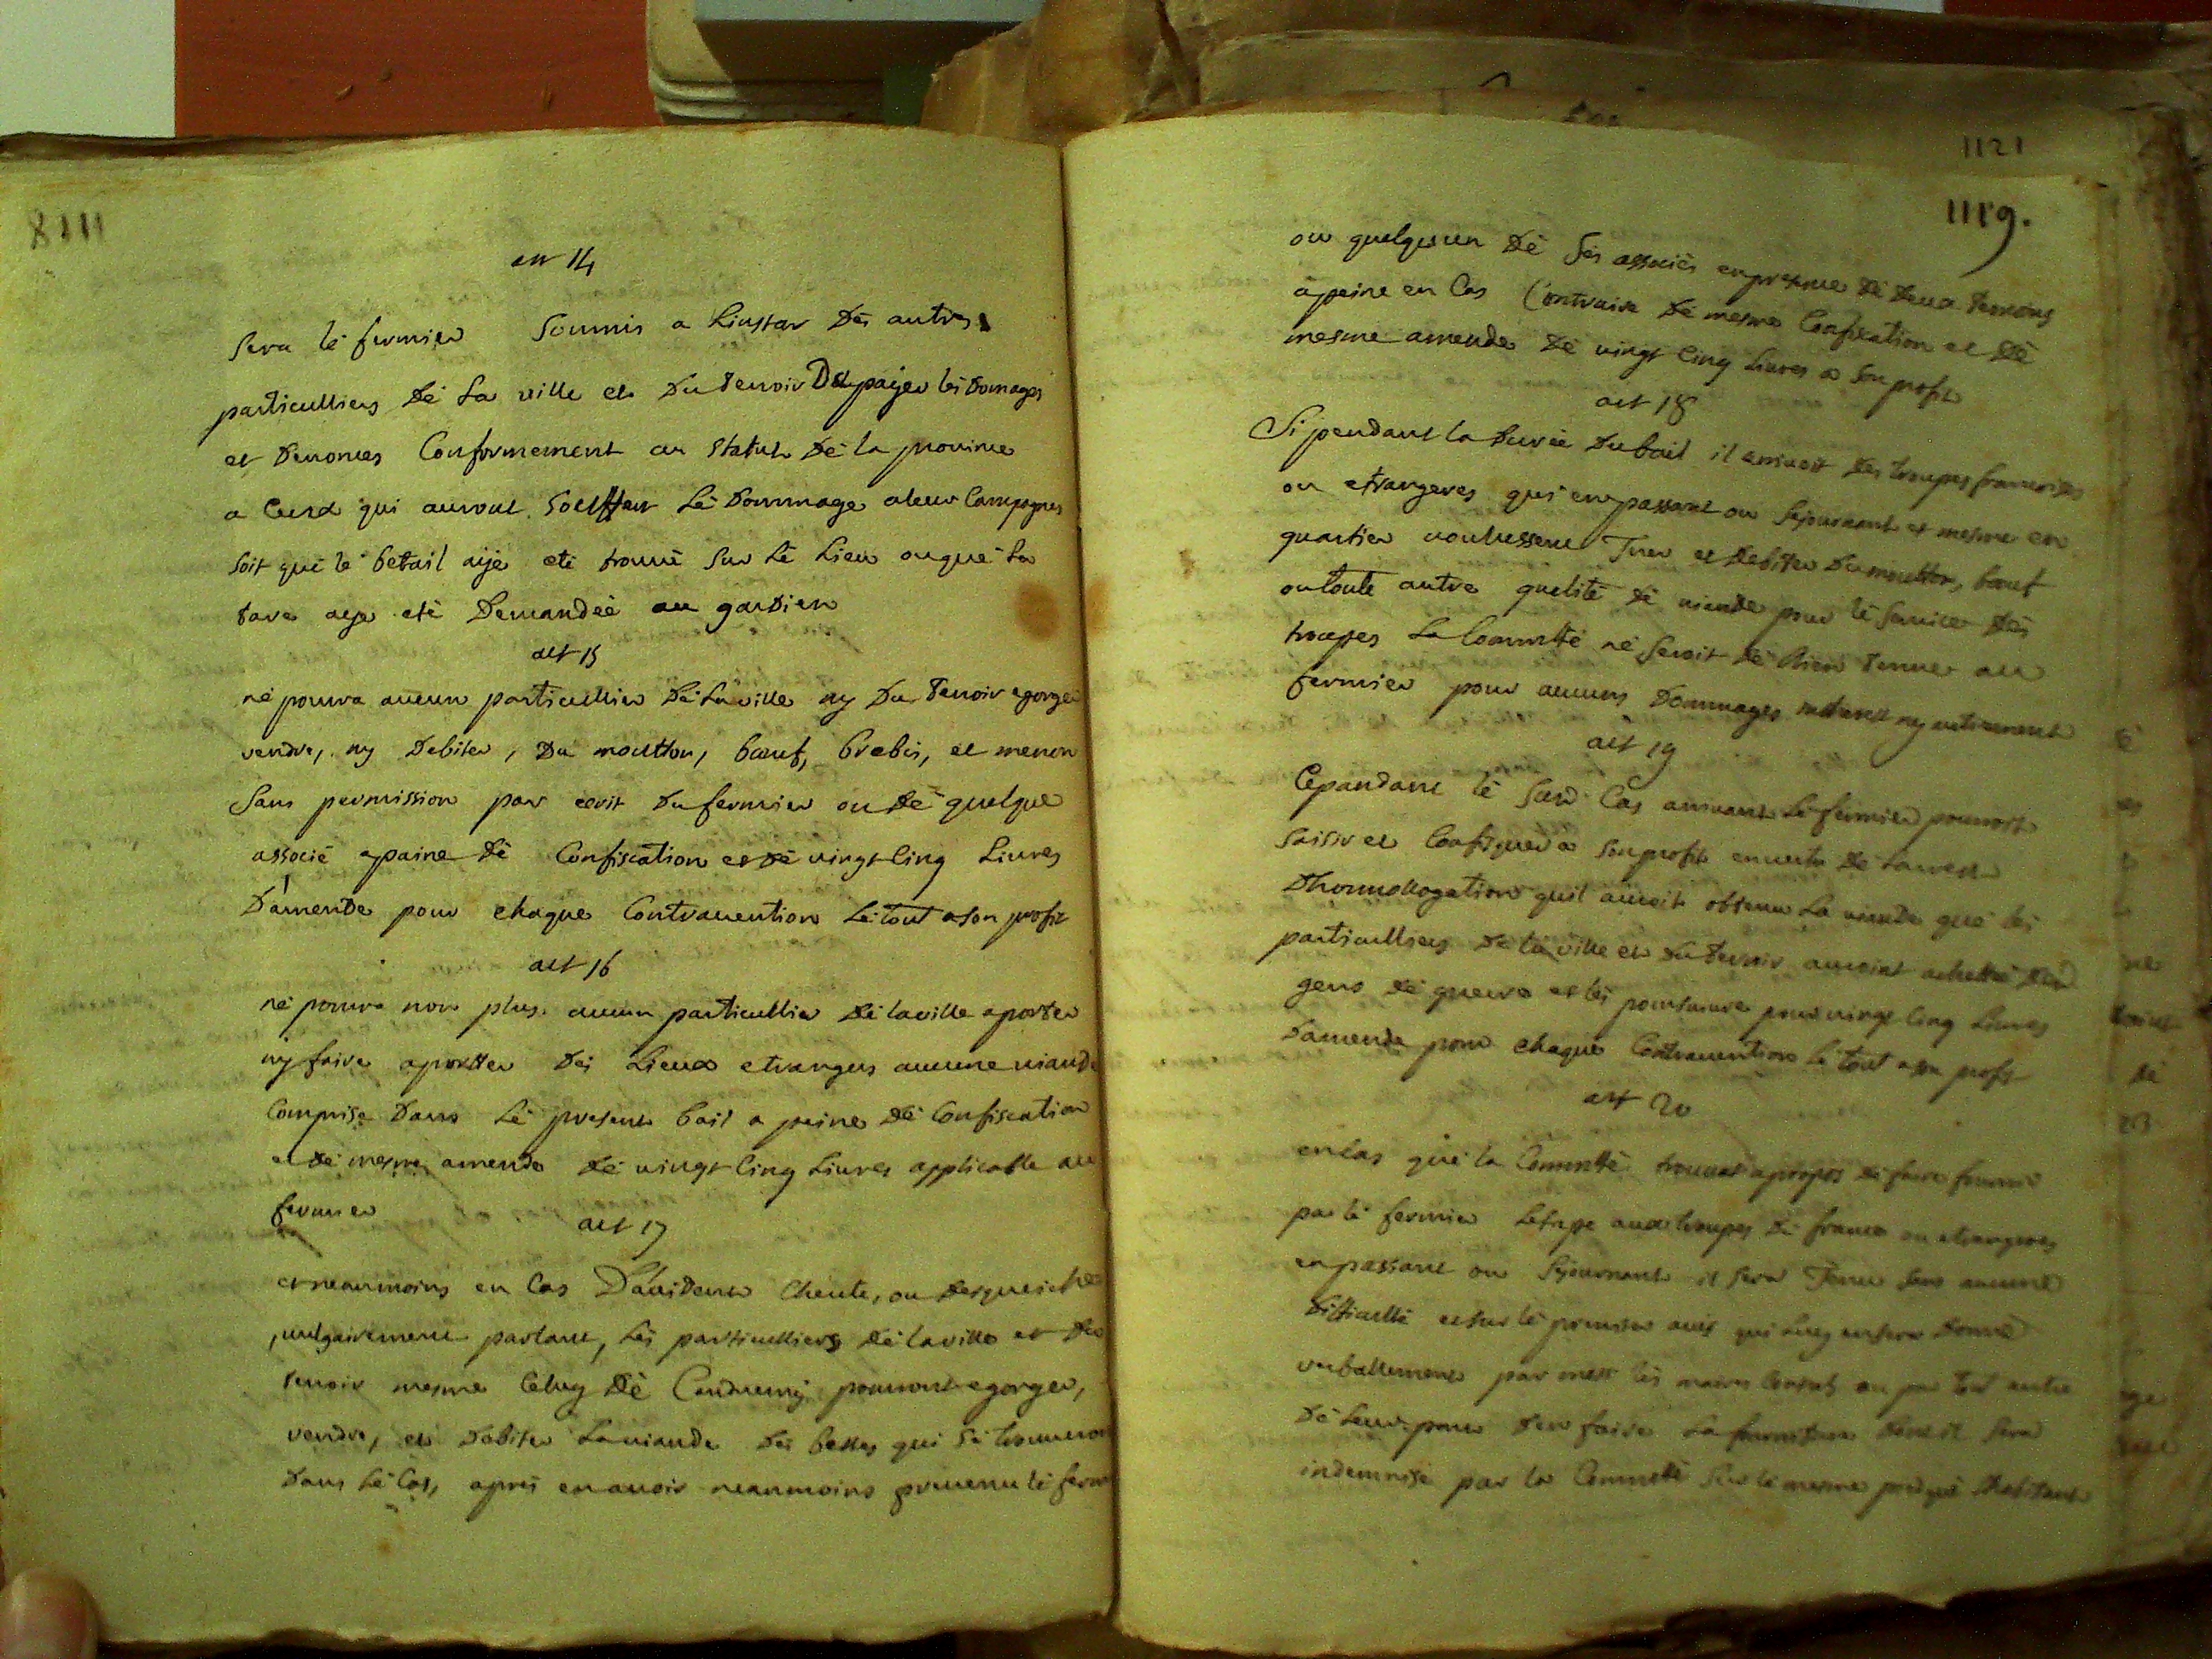 8111
art 14
Sera lé fermier Soumis a Linstar Dés autres
particulliers Dé La ville et Du terroir De payer lés Domages
et Denonces Conformement au statut Dé la province
a Ceux qui auront Souffert Lé Dommage a leur Campagnes
soit qué lé betail aije eté trouvé Sur Lé Lieu ou qué La
tare aije eté Demandéé au gardien
art 15
né pourra aucun particullier Dé La ville ny Du terroir egorger
vendre, ny Debiter, Du moutton, bœuf, brebis, et menon
Sans permission par ecrit Du fermier ou Dé quelque
associé a paine Dé Confiscation et Dé vingt Cinq Livres
D'amende pour chaque Contravention Lé tout a son profit
art 16
né pourra non plus aucun particullier Dé la ville aporter
ny faire aportter Dés Lieux etrangers aucune viande
Comprise Dans Lé present bail a peine Dé Confiscation
et Dé mesme amende Dé vingt Cinq Livres applicable au
fermier
art 17
et neanmoins en Cas D'avidence Cheute, ou
vulgairement parlant, Lés particulliers Dé la ville et Du
terroir mesme Celuy Dé pourront egorger,
vendre, et Debiter La viande Dés bestes qui Sé trouveront
Dans Lé Cas, aprés en avoir neanmoins prevenu lé ferm
1121
1119.
ou quelquun Dé Sés associés en presence Dé Deux temoins
a peine en Cas Contraire Dé mesme Confiscation et Dé
mesme amende Dé vingt Cinq Livres a Son profit
art 18
Si pendant la Durée Du bail il arrivoit Dés troupes francoises
ou etrangeres qui en passant ou Sejournant et mesme en
quartier voulussent Tuer et Debiter Du moutton, bœuf
ou toute autre qualité Dé viande pour lé Service Dés
trouppes La Commtté né Seroit Dé Rien tenue au
fermier pour aucuns Dommages ny autrement
art 19
Cepandant lé Susd Cas arrivant Lé fermier pourroit
Saisir et Confisquer a Son profit en vertu Dé Larrest
Dhommollogation quil auroit obtenu La viande qué lés
particulliers Dé la ville et Du terroir auroint achetté Des
gens Dé guerre et lés poursuivre pour vingt Cinq Livres
Damende pour chaque Contravention lé tout a son profit
art 20
en Cas qué la Commtté trouvat apropos Dé faire fournir
par lé fermier Letape aux troupes Dé france ou etrangeres
en passant ou Sejournant il Sera Tenu Sans aucune
Difficulté et Sur lé premier avis qui Luy en Sera Donné
verballement par mess lés maires Consuls ou par tout autre
Dé Leur part Den faire La fourniture Dont il Sera
indemnisé par la Commtté Sur lé mesme pied qué Lhabitant